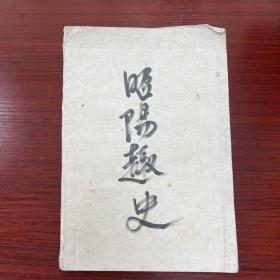 昭陽趣史